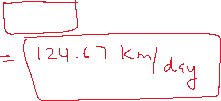 = 124.67 km/day